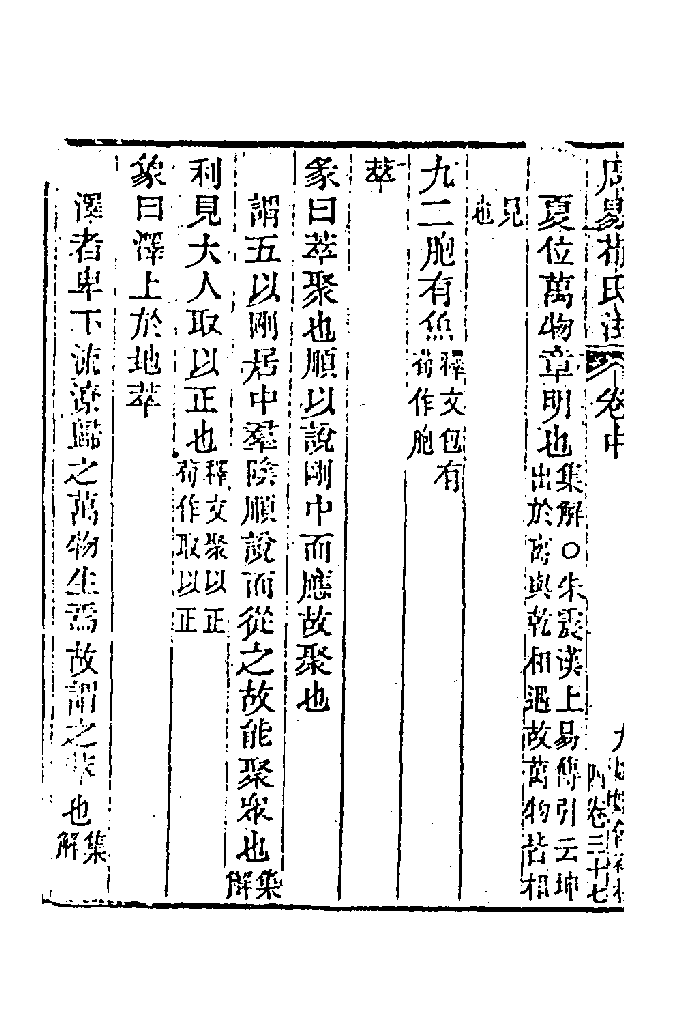 周易荀氏注 卷中
夏位萬物章明也集解○朱震漢上易傳引云坤出於离與乾相遇故萬物皆相
見也
九二胞有魚釋文包有荀作胞
萃
彖曰萃聚也順以說剛中而應故聚也
謂五以剛居中羣陰順說而從之故能聚衆也集解
利見大人取以正也釋文聚以正荀作取以正
象曰澤上於地萃
澤者卑下流潦歸之萬物生焉故謂之萃也集解